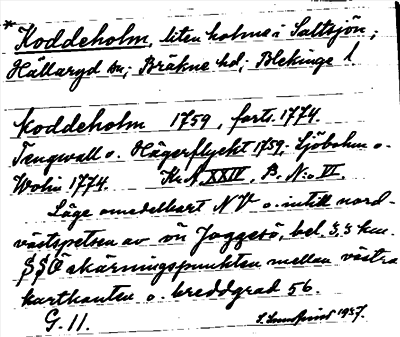 *Koddeholm, liten holme i Saltsjön;
Hällaryd sn; Bräkne hd; Blekinge l
Koddeholm 1759, forts. 1774.
Tengwall o. Hägerflyckt 1759; Sjöbohm o.
Wohin 1774. Kr. A. XXIV, B. N:o VI.
Läge omedelbart NV o. intill nord-
västspetsen av ön Joggesö, bel. 3,3 km.
SSÖ skärningspunkten mellan västra
kartkanten o. breddgrad 56.
G. 11. 1937.